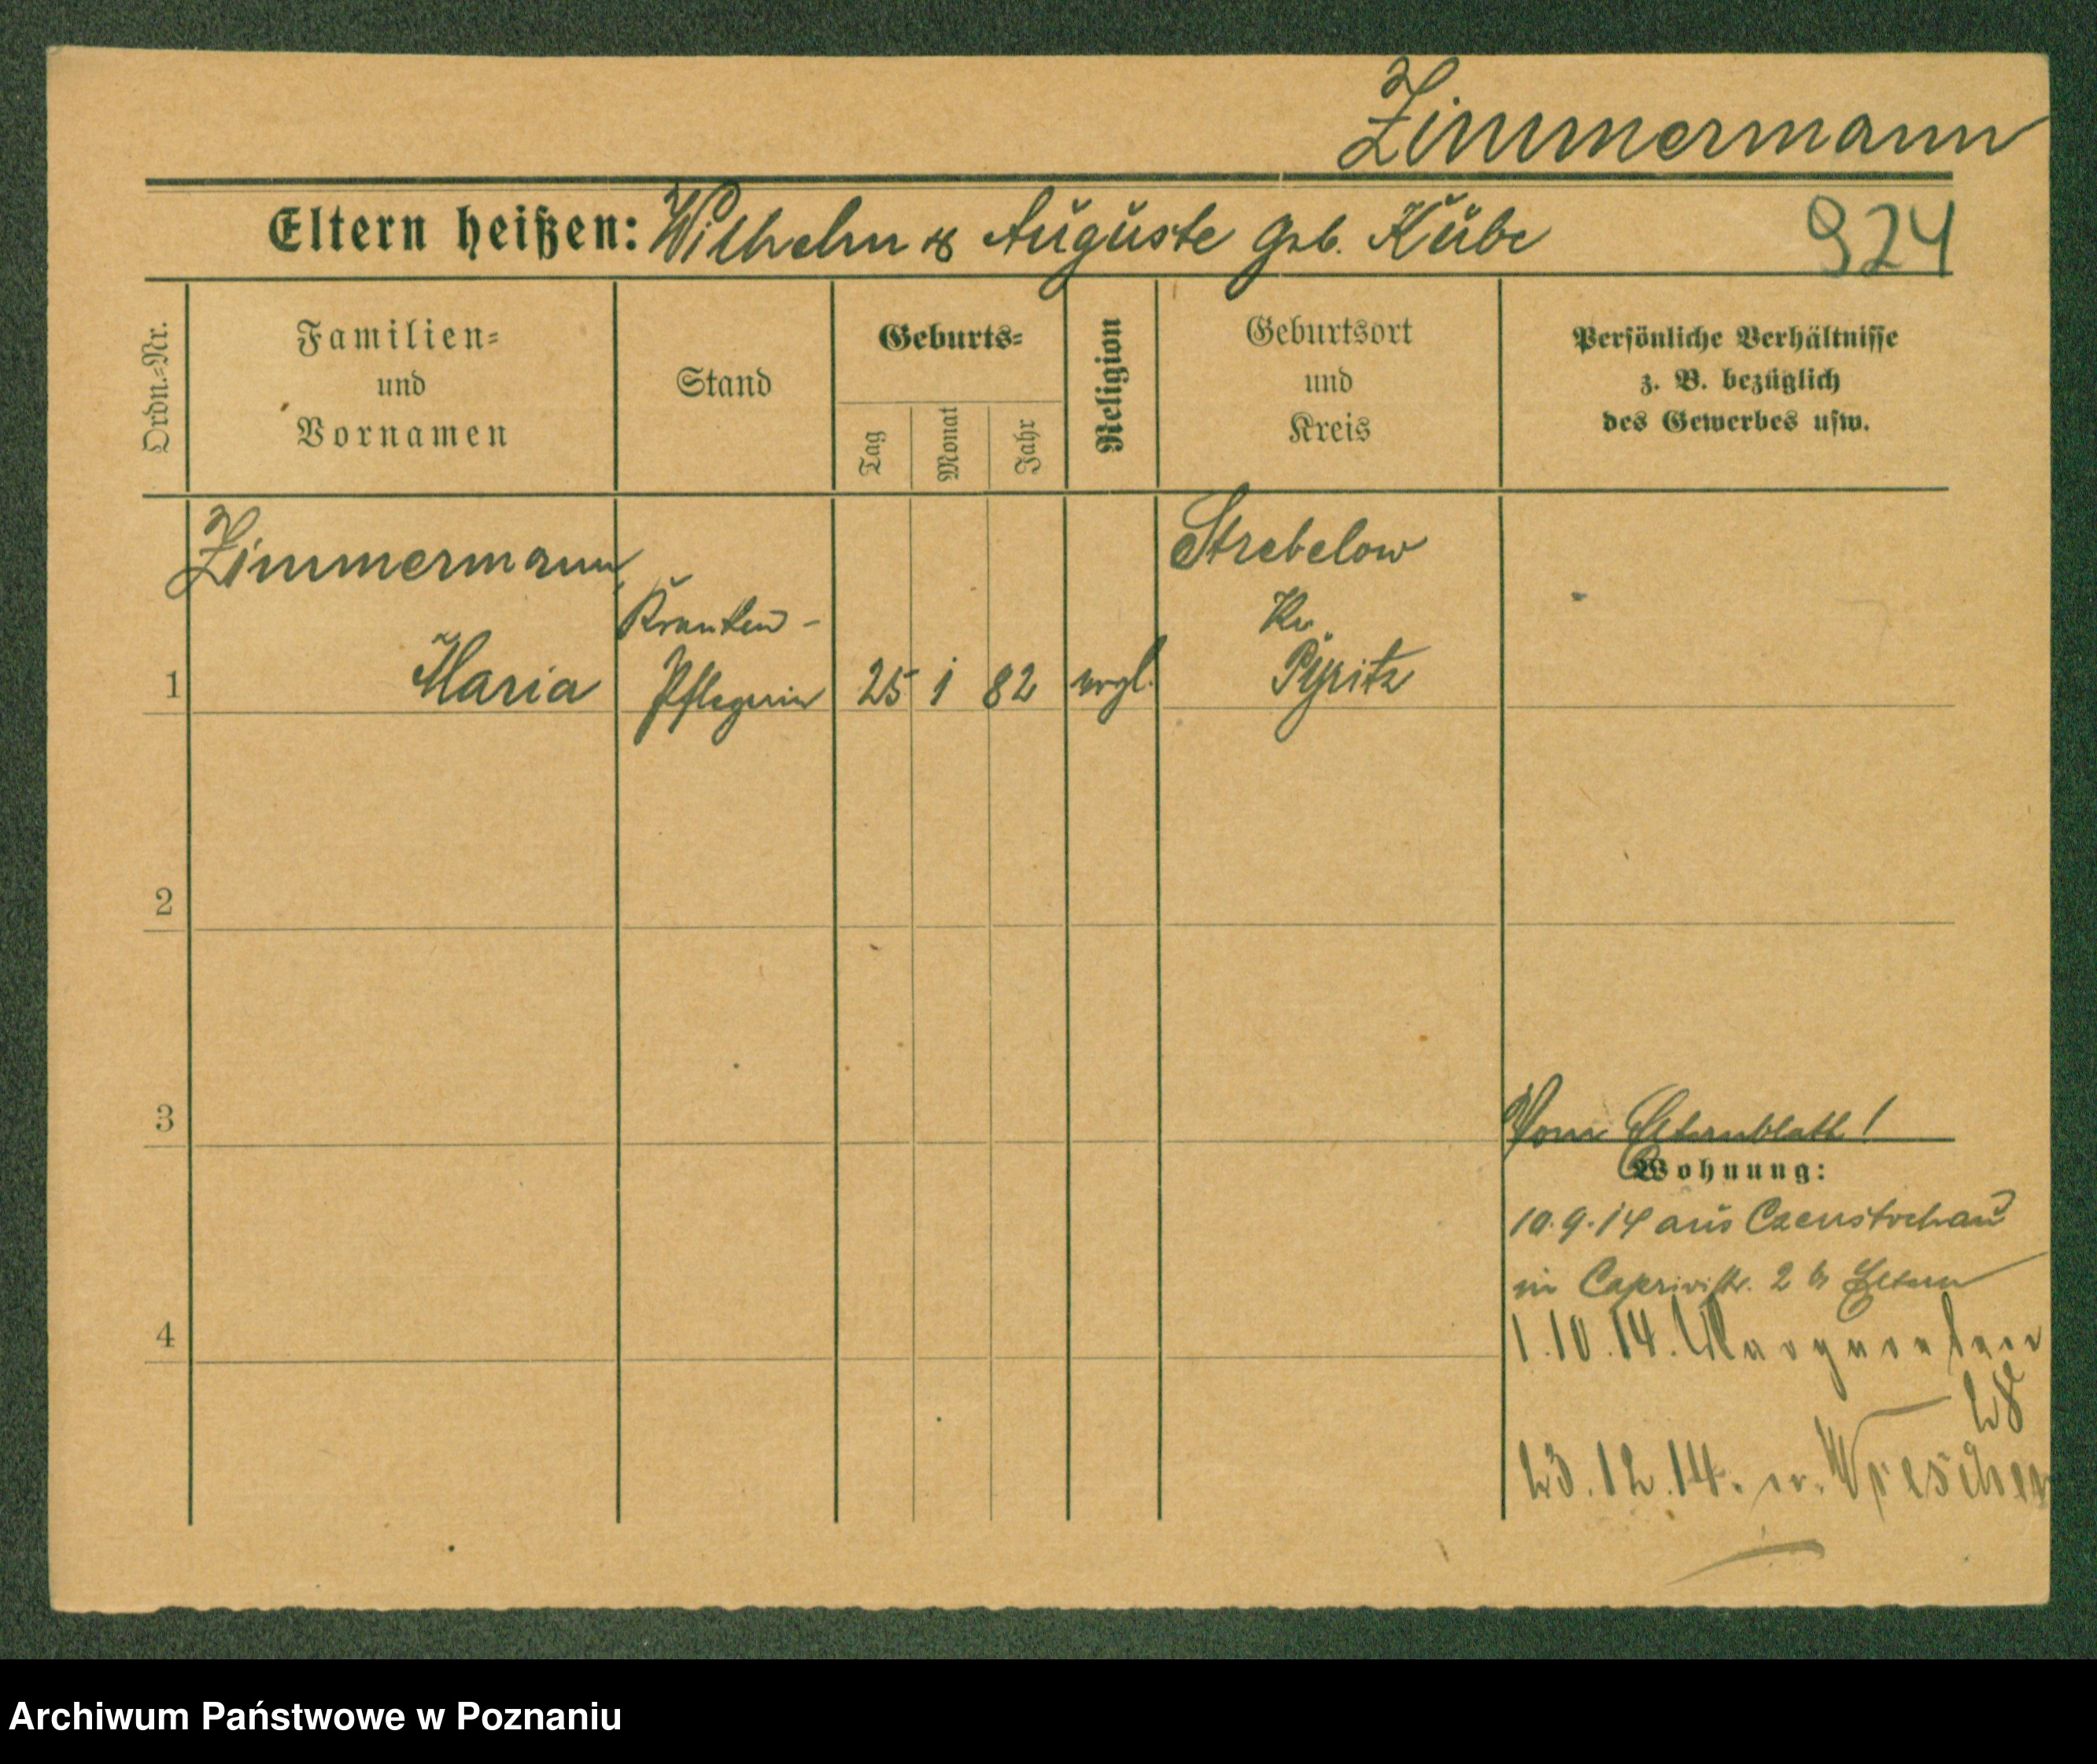 Zimmermann
Eltern heißen: Wilhelm & Auguste geb. Kübe
924
Ordn.-Nr.
Familien-
und
Vornamen
Stand
Geburts-
Tag
Monat
Jahr
Religion
Geburtsort
und
Kreis
Persönliche Verhältnisse
z. B. bezüglich
des Gewerbes usw.
Zimmermann
Strebelow
Kranken-
Kr.
1 Maria Pflegerin 25 1 82 evgl. Pyritz
2
3
Vom Elternblatt!
Wohnung:
10.9.14 aus Czenstochau
in Caprivistr. 2 b Eltern
4
1.10.14.
28
23.12.14. n. Wreschen
Archiwum Państwowe w Poznaniu